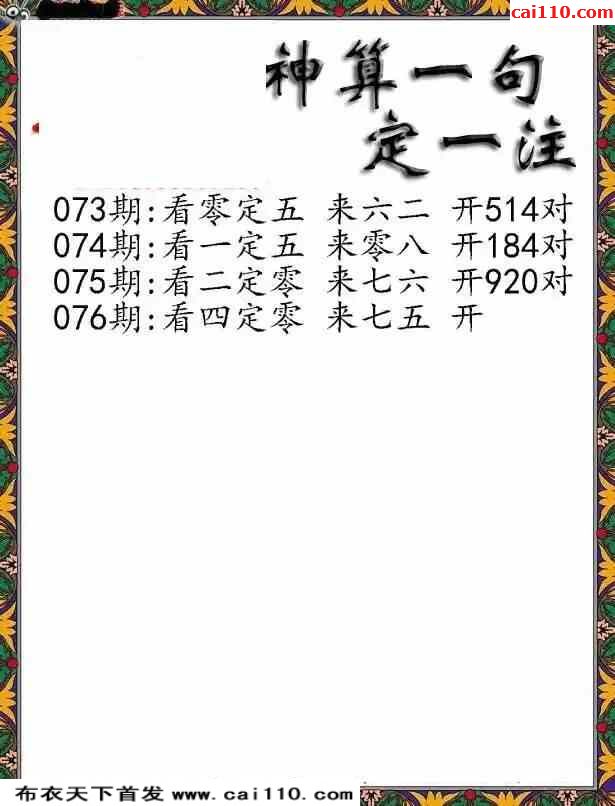 cai110.com
神算一句
定一注
073期:看零定五 来六二 开514对
074期:看一定五 来零八 开184对
075期:看二定零 来七六 开920对
076期:看四定零 来七五 开
布衣天下首发 www.cai110.com